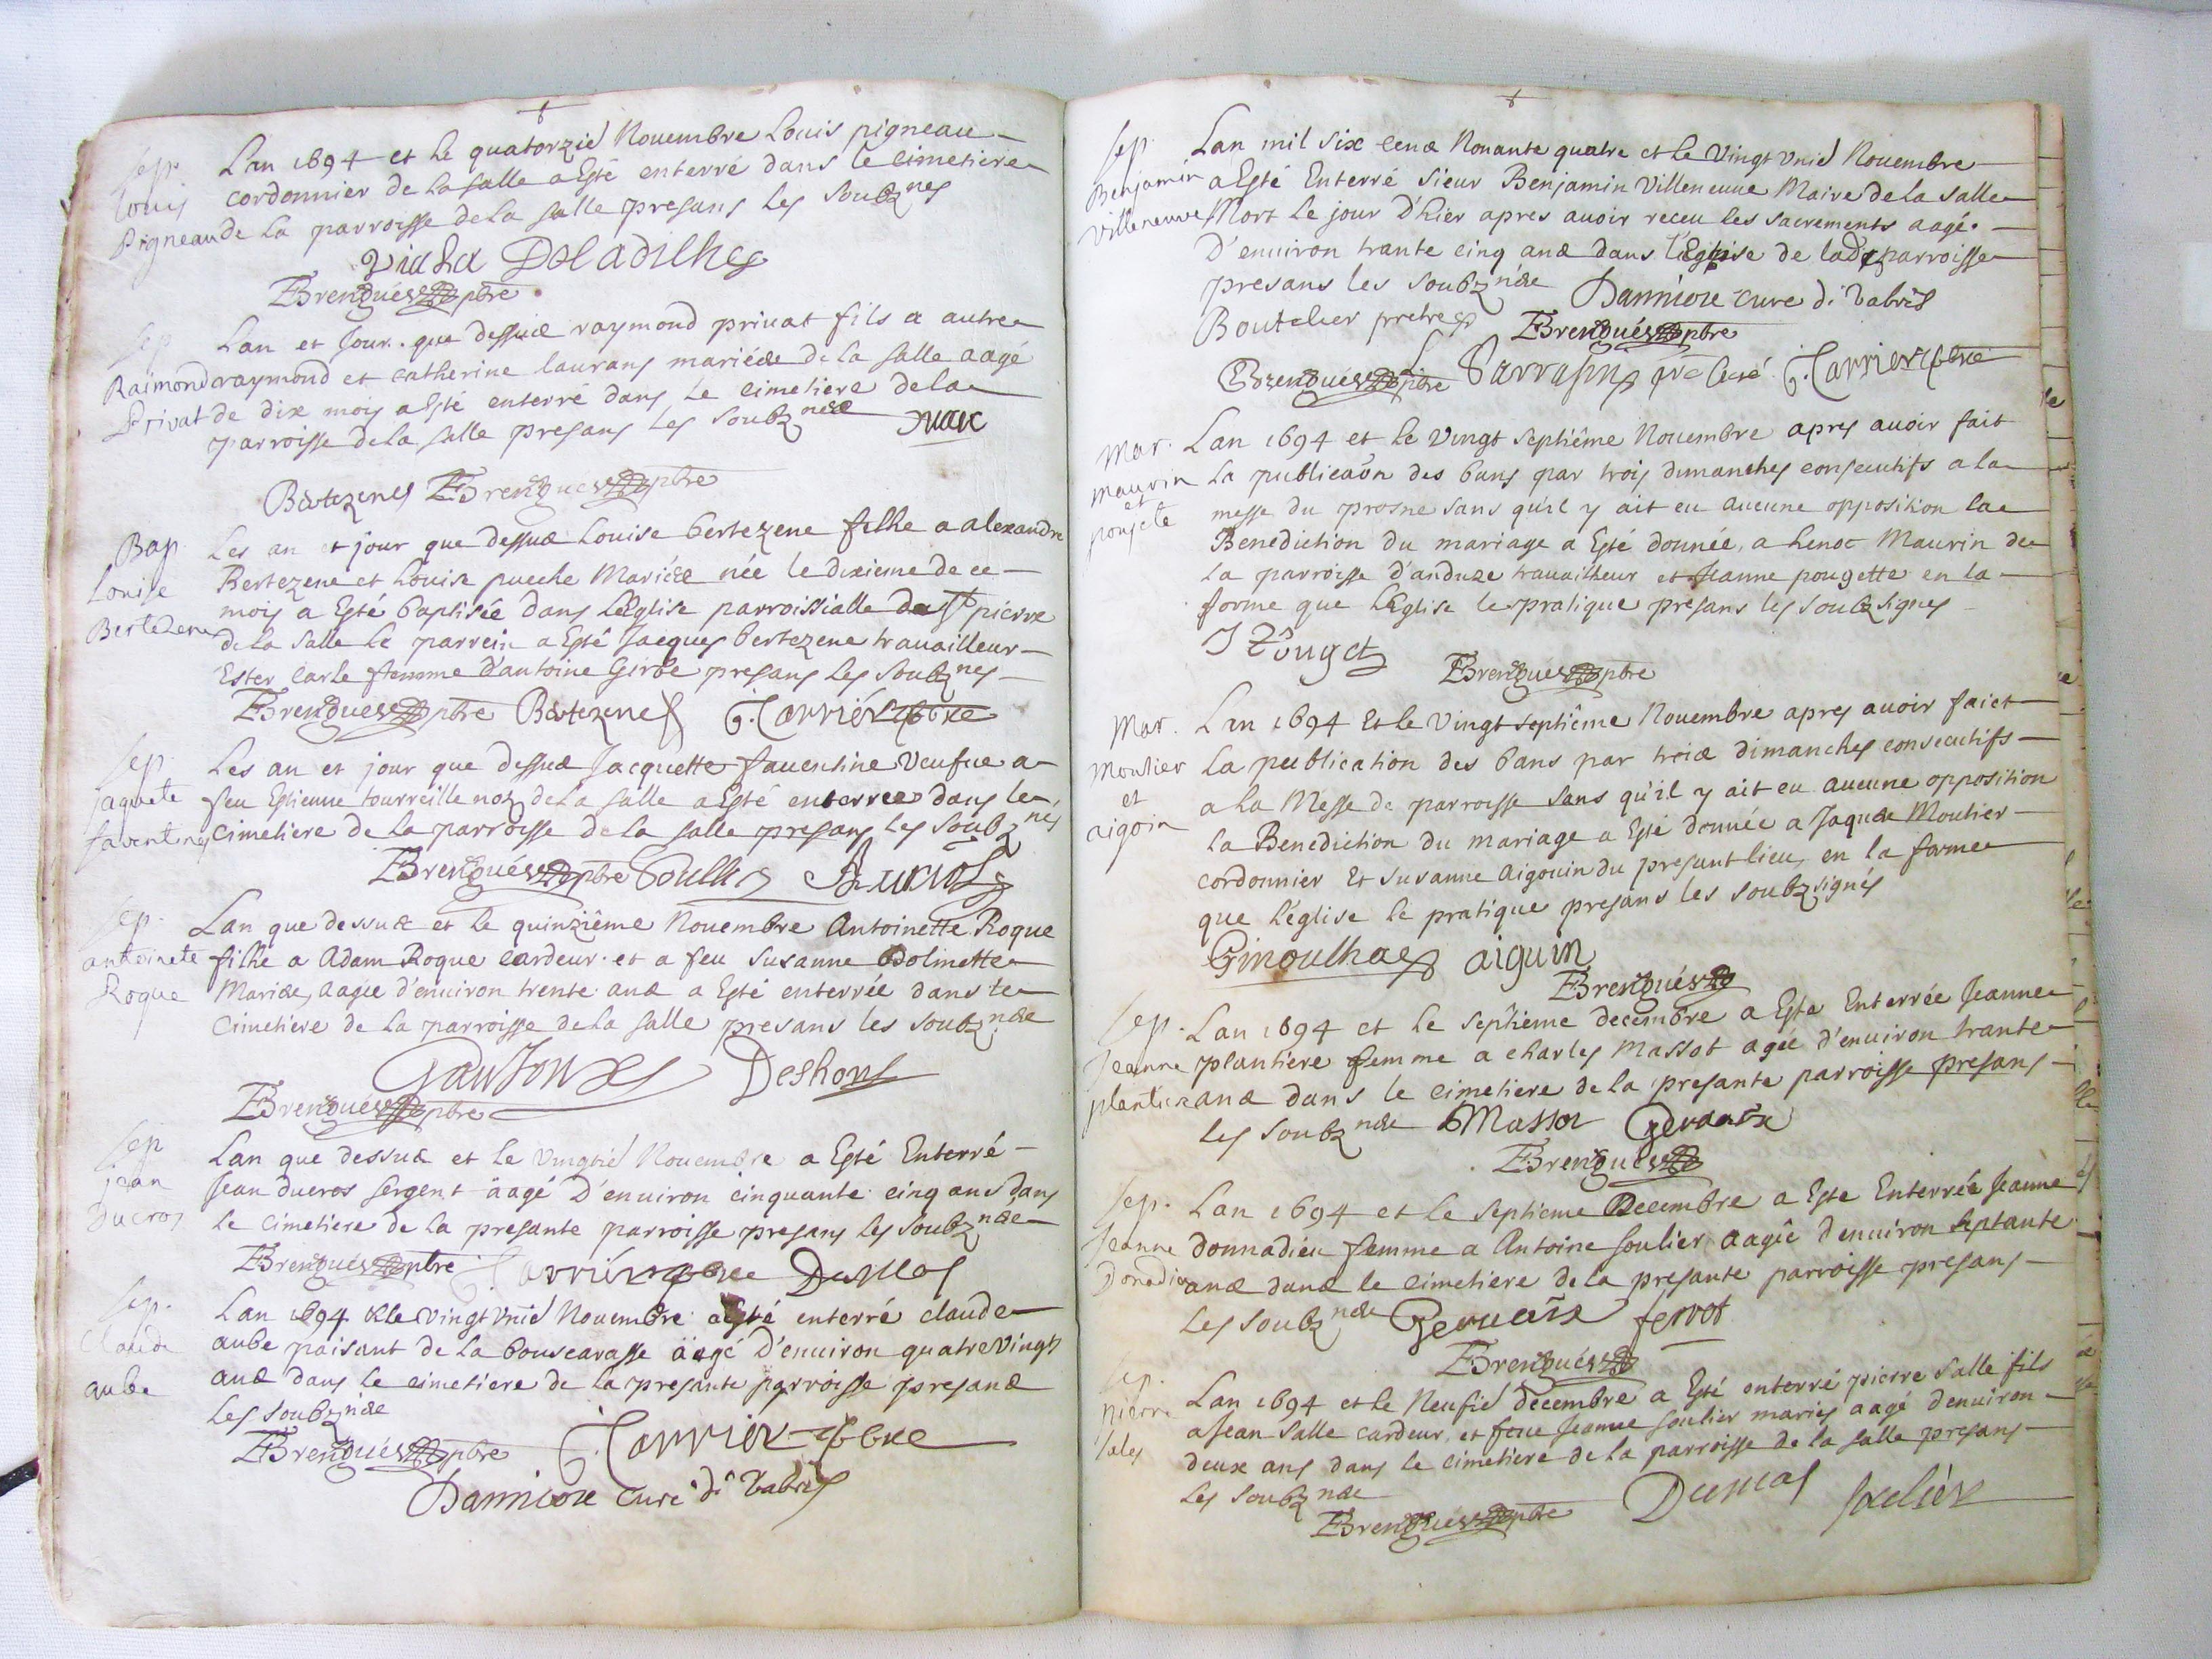 Sep.
Louis
Pigneau
Lan 1694 et le quatorzie Nouembre Louis pigneau
cordonnier de La salle a Esté enterré dans le cimetiere
de La parroisse de La salle presans les soubznes
viala Deladilhes
Brengues pbre
Sep
Raimond
Privat
Lan et Jour que dessus raymond priuat fils a autre
raymond et catherine laurans mariés de la salle aagé
de dix mois a esté enterré dans Le cimetiere de la
parroisse de la salle presans les soubznés
Bertezenes Brengues pbre
Bap.
Louise
Bertezene
Les an et jour que dessus Louise bertezene filhe a alexandre
Bertezene et Louise pueche Mariés née le dixieme de ce
mois a Esté baptisée dans L'Eglise parroissialle de St pierre
de la salle Le parrein a Esté Jacques bertezene trauailleur
Ester carle femme d'antoine Girbe presans les soubznes
Brengues pbre Bertezenes G. Carrier pbre
Sep
Jaquete
faventine
Les an et jour que dessus Jacquette fauentine veufue a
feu Estienne tourreille notz de la salle a esté enterree dans le
cimetiere de la parroisse de la salle presans les soubznes
Brengués pbre
Sep.
antoinete
Roque
Lan que dessus et le quinziême Nouembre Antoinette Roque
filhe a Adam Roque cardeur et a feu Susanne Dolmette
Mariés, aagée d'enuiron trente ans a Esté enterrée dans le
Cimetiere de La parroisse de la salle presans les soubznés
Deshons
Brengués pbre
Sep
jean
Ducros
Lan que dessus et le vingtie Nouembre a Esté Enterré
Jean ducros sergent aagé D'enuiron cinquante cinq ans dans
le cimetiere de la presante parroisse presans les soubznés
Brengues pbre Carrier pbre Dumas
Sep.
Claude
aube
Lan 1694 & le vingt vnie Nouembre a esté enterré claude
aube paisant de la bouscarasse aagé D'enuiron quatre vingts
ans dans le cimetiere de la presante parroisse presans
les soubznés
Brengués pbre G. Carrier pbre
Danniore curé di Vabres
Sep.
Benjamin
Villeneuve
Lan mil six cens Nonante quatre et le vingt vnie Nouembre
a Esté Enterré Sieur Benjamin Villeneuue Maire de la Salle
Mort le jour D'hier apres auoir receu les sacrements aagé
D'enuiron trante cinq ans dans l'Eglise de lade parroisse
presans les soubznés Danniore cure di Vabres
Boutelier pretre Brengués pbre
Brengués pbre G. Carrier pbre
Mar.
Maurin
et
pougete
Lan 1694 et le vingt septiême Nouembre apres auoir fait
La publicaôn des bans par trois dimanches consecutifs a la
messe du prosne sans qu'il y ait eu aucune opposition la
Benediction du mariage a Esté donnée, a henoc Maurin de
La parroisse d'anduze trauailheur et Jeanne pougette en la
forme que L'Eglise le pratique presans les soubz signes
J Pouget
Brengués pbre
Mar.
Moulier
et
aigoin
Lan 1694 Et le vingt septiême Nouembre apres auoir faict
La publication des bans par trois dimanches consecutifs
a la Messe de parroisse sans qu'il y ait eu aucune opposition
la Benediction du mariage a Esté donnée a Jaques Moulier
cordonnier Et Susanne Aigouin du presant lieu, en la forme
que L'église le pratique presans les soubzsignés
Ginoulhac aiguin
Brengués
Sep.
Jeanne
plantiere
Lan 1694 et le septieme decembre a Esté Enterrée Jeanne
plantiere femme a charles Massot agée d'enuiron trante
ans dans le cimetiere de la presante parroisse presans
les soubznés Massot Gervaix
Brengués
Sep.
Jeanne
Donadieu
Lan 1694 et le septieme Decembre a Esté Enterrée Jeanne
donnadieu femme a Antoine soulier aagée d'enuiron septante
ans dans le cimetiere de la presante parroisse presans
Les soubznés Gervaix
Brengués
Sep.
pierre
sales
Lan 1694 et le Neufie decembre a Esté enterré pierre salle fils
a Jean salle cardeur, et feue Jeanne soulier maries aagé d'enuiron
deux ans dans le cimetiere de la parroisse de la salle presans
Les soubznés
Brengués pbre Dumas soulier